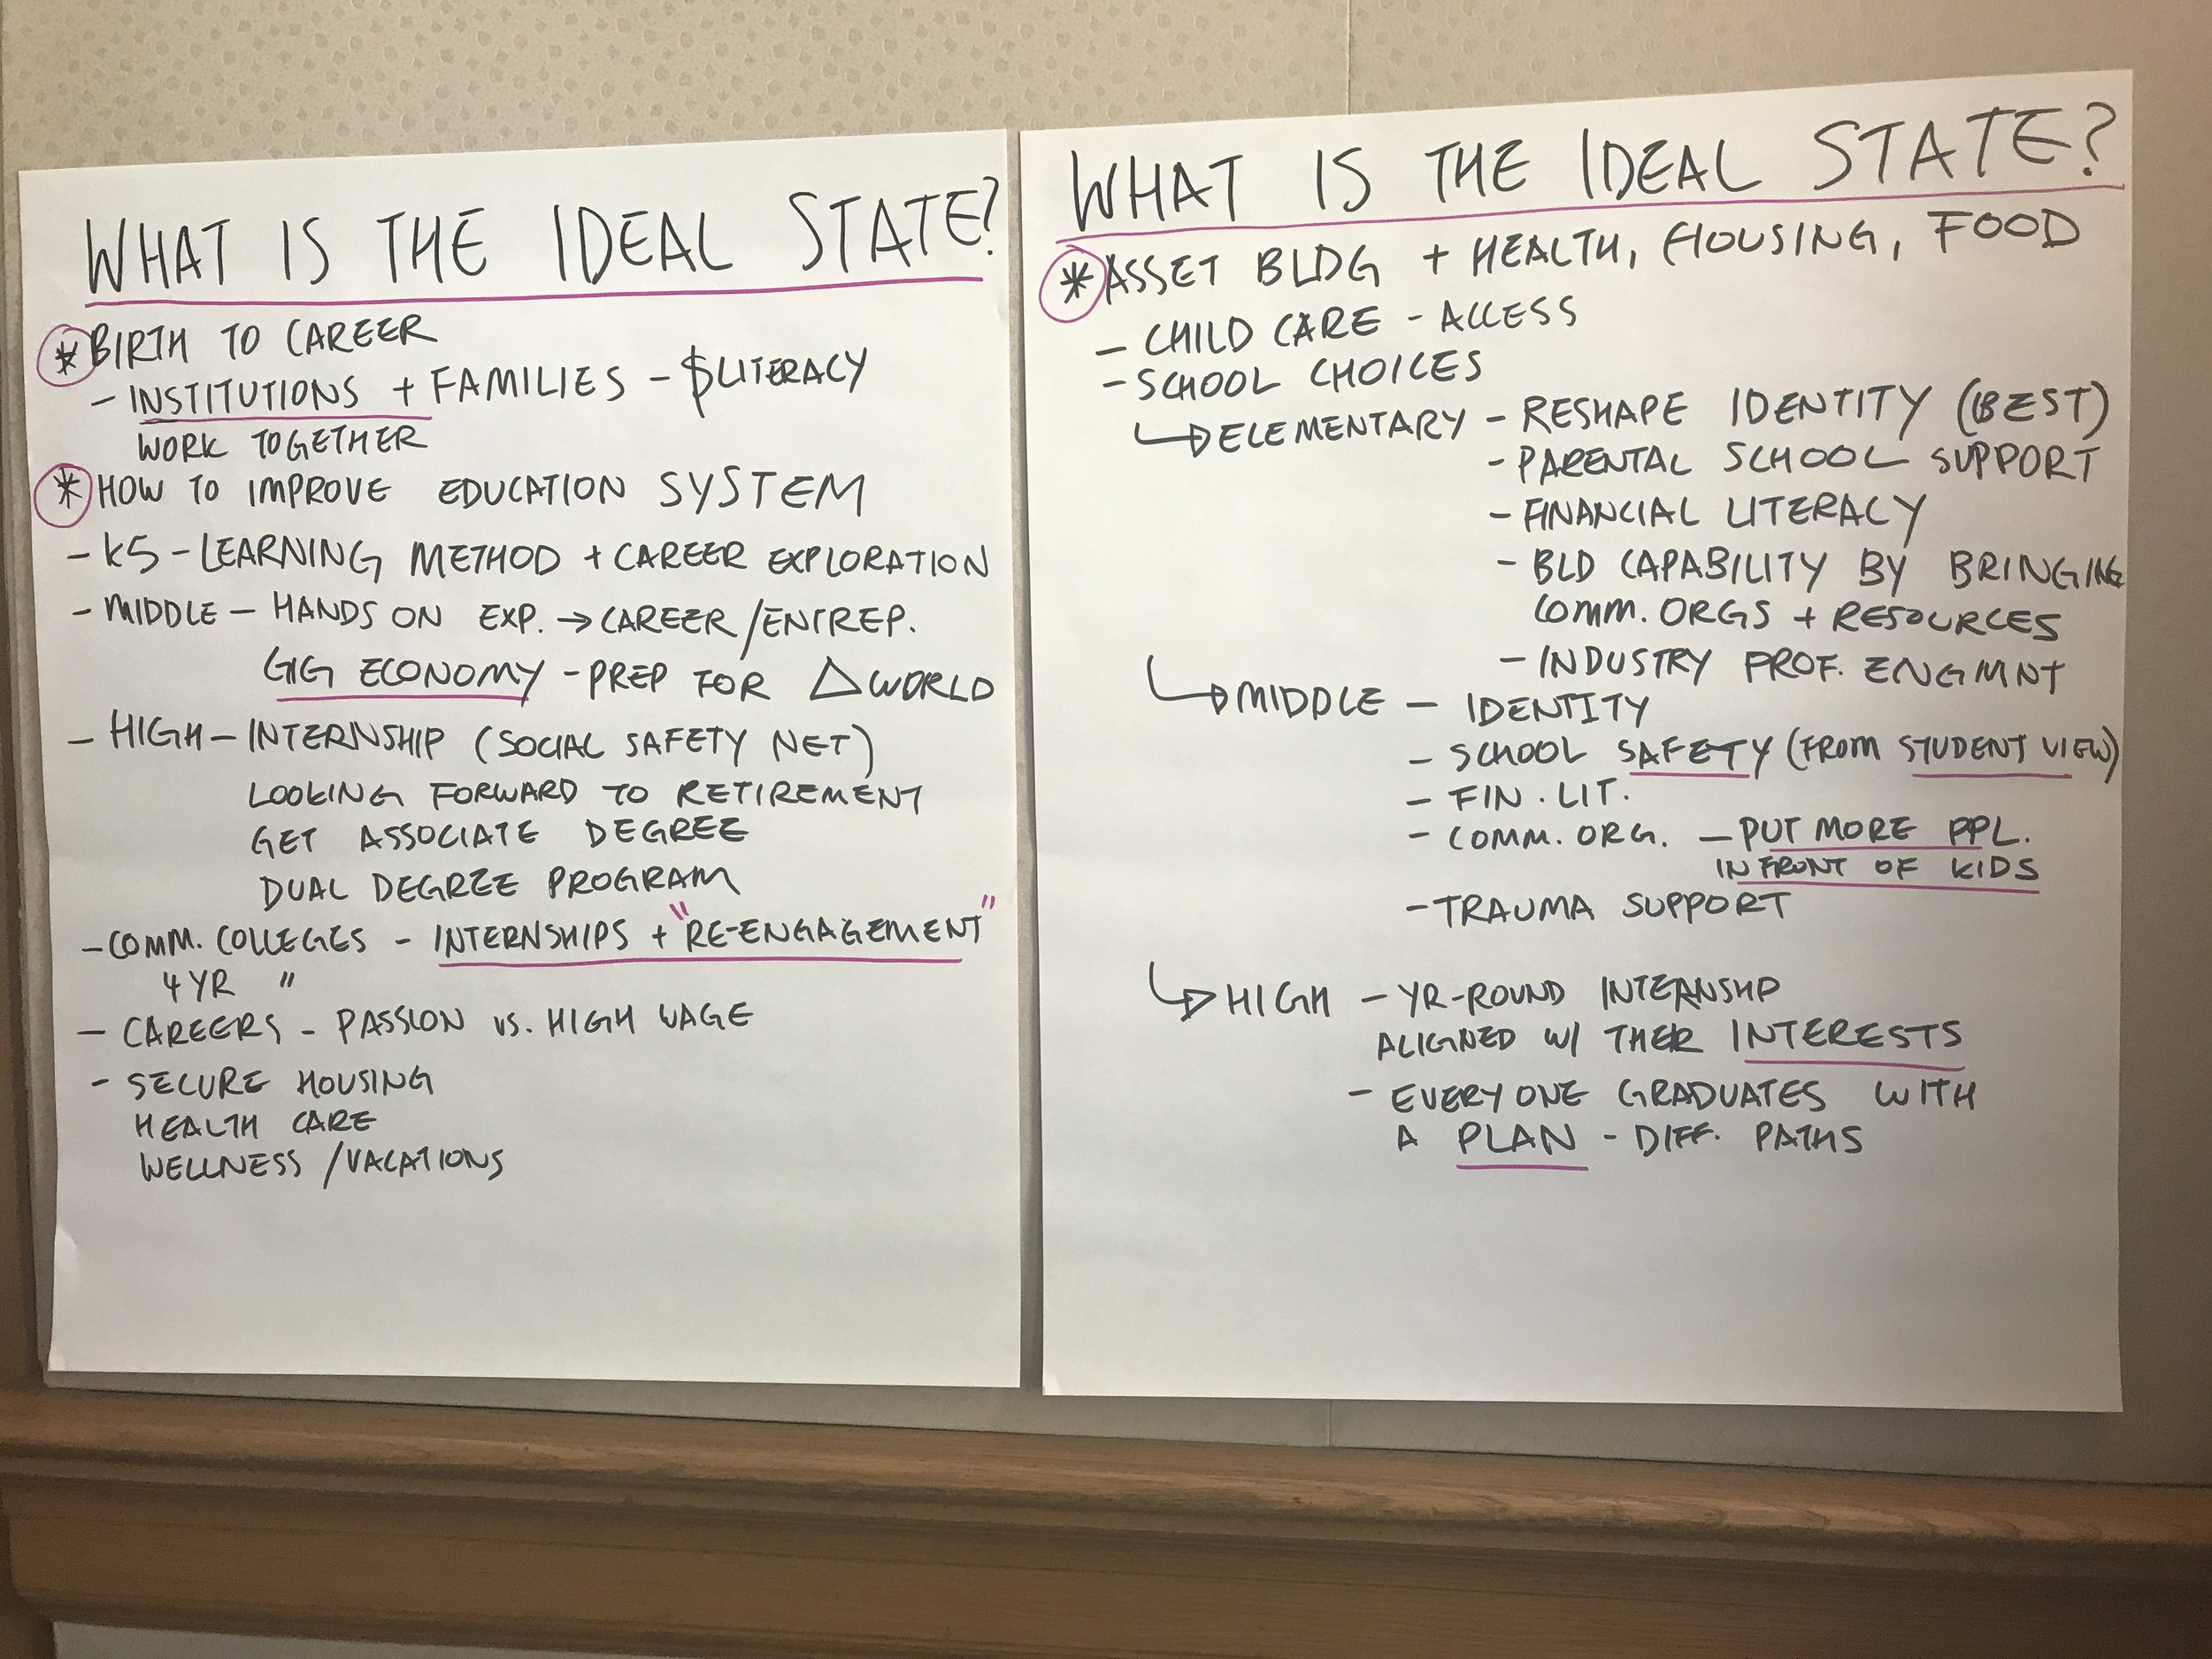 WHAT IS THE IDEAL STATE?
* BIRTH TO CAREER
- INSTITUTIONS + FAMILIES - $LITERACY
WORK TOGETHER
* HOW TO IMPROVE EDUCATION SYSTEM
- K5 - LEARNING METHOD + CAREER EXPLORATION
- MIDDLE - HANDS ON EXP. → CAREER/ENTREP.
GIG ECONOMY - PREP FOR △ WORLD
- HIGH - INTERNSHIP (SOCIAL SAFETY NET)
LOOKING FORWARD TO RETIREMENT
GET ASSOCIATE DEGREE
DUAL DEGREE PROGRAM
- COMM. COLLEGES - INTERNSHIPS + "RE-ENGAGEMENT"
4 YR "
- CAREERS - PASSION VS. HIGH WAGE
- SECURE HOUSING
HEALTH CARE
WELLNESS /VACATIONS
WHAT IS THE IDEAL STATE?
* ASSET BLDG + HEALTH, HOUSING, FOOD
- CHILD CARE - ACCESS
- SCHOOL CHOICES
↳ ELEMENTARY - RESHAPE IDENTITY (BEST)
- PARENTAL SCHOOL SUPPORT
- FINANCIAL LITERACY
- BLD CAPABILITY BY BRINGING
COMM. ORGS + RESOURCES
- INDUSTRY PROF. ENGMNT
↳ MIDDLE - IDENTITY
- SCHOOL SAFETY (FROM STUDENT VIEW)
- FIN. LIT.
- COMM. ORG. - PUT MORE PPL.
IN FRONT OF KIDS
- TRAUMA SUPPORT
↳ HIGH - YR-ROUND INTERNSHP
ALIGNED W/ THER INTERESTS
- EVERYONE GRADUATES WITH
A PLAN - DIFF. PATHS